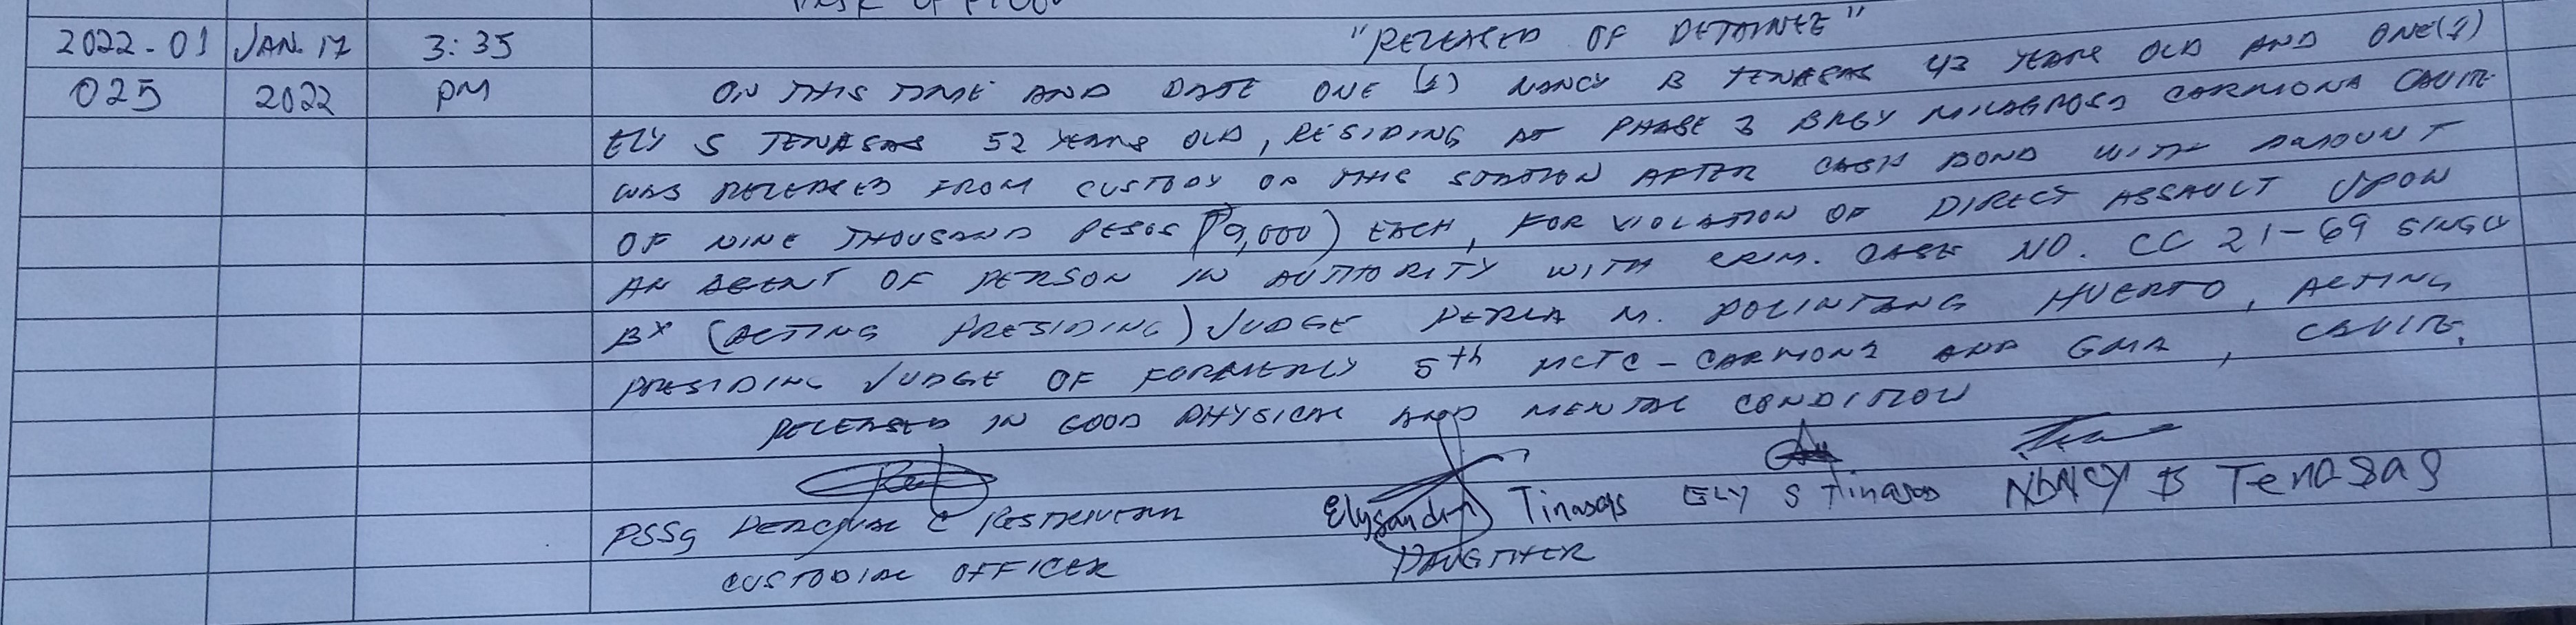 2022-01 JAN. 17 3:35 "RELEASED OF DETAINEE"
025 2022 PM ON THIS TIME AND DATE ONE (1) NANCY B TENASAS 43 YEARS OLD AND ONE (1)
ELY S TENASAS 52 YEARS OLD, RESIDING AT PHASE 3 BRGY MILAGROSA CARMONA CAVITE
WAS RELEASED FROM CUSTODY OF THIS STATION AFTER CASH BOND WITH AMOUNT
OF NINE THOUSAND PESOS (₱9,000) EACH, FOR VIOLATION OF DIRECT ASSAULT UPON
AN AGENT OF PERSON IN AUTHORITY WITH CRIM. CASE NO. CC 21-69 SINGD
BY (ACTING PRESIDING) JUDGE PERLA M. HUERTO, ACTING
PRESIDING JUDGE OF FORMERLY 5th MCTC - CARMONA AND GMA, CAVITE.
RELEASED IN GOOD PHYSICAL AND MENTAL CONDITION
PSSg PERCIVAL C Elysandra Tinasas ELY S Tinasas NANCY B Tenasas
CUSTODIAL OFFICER DAUGTHER